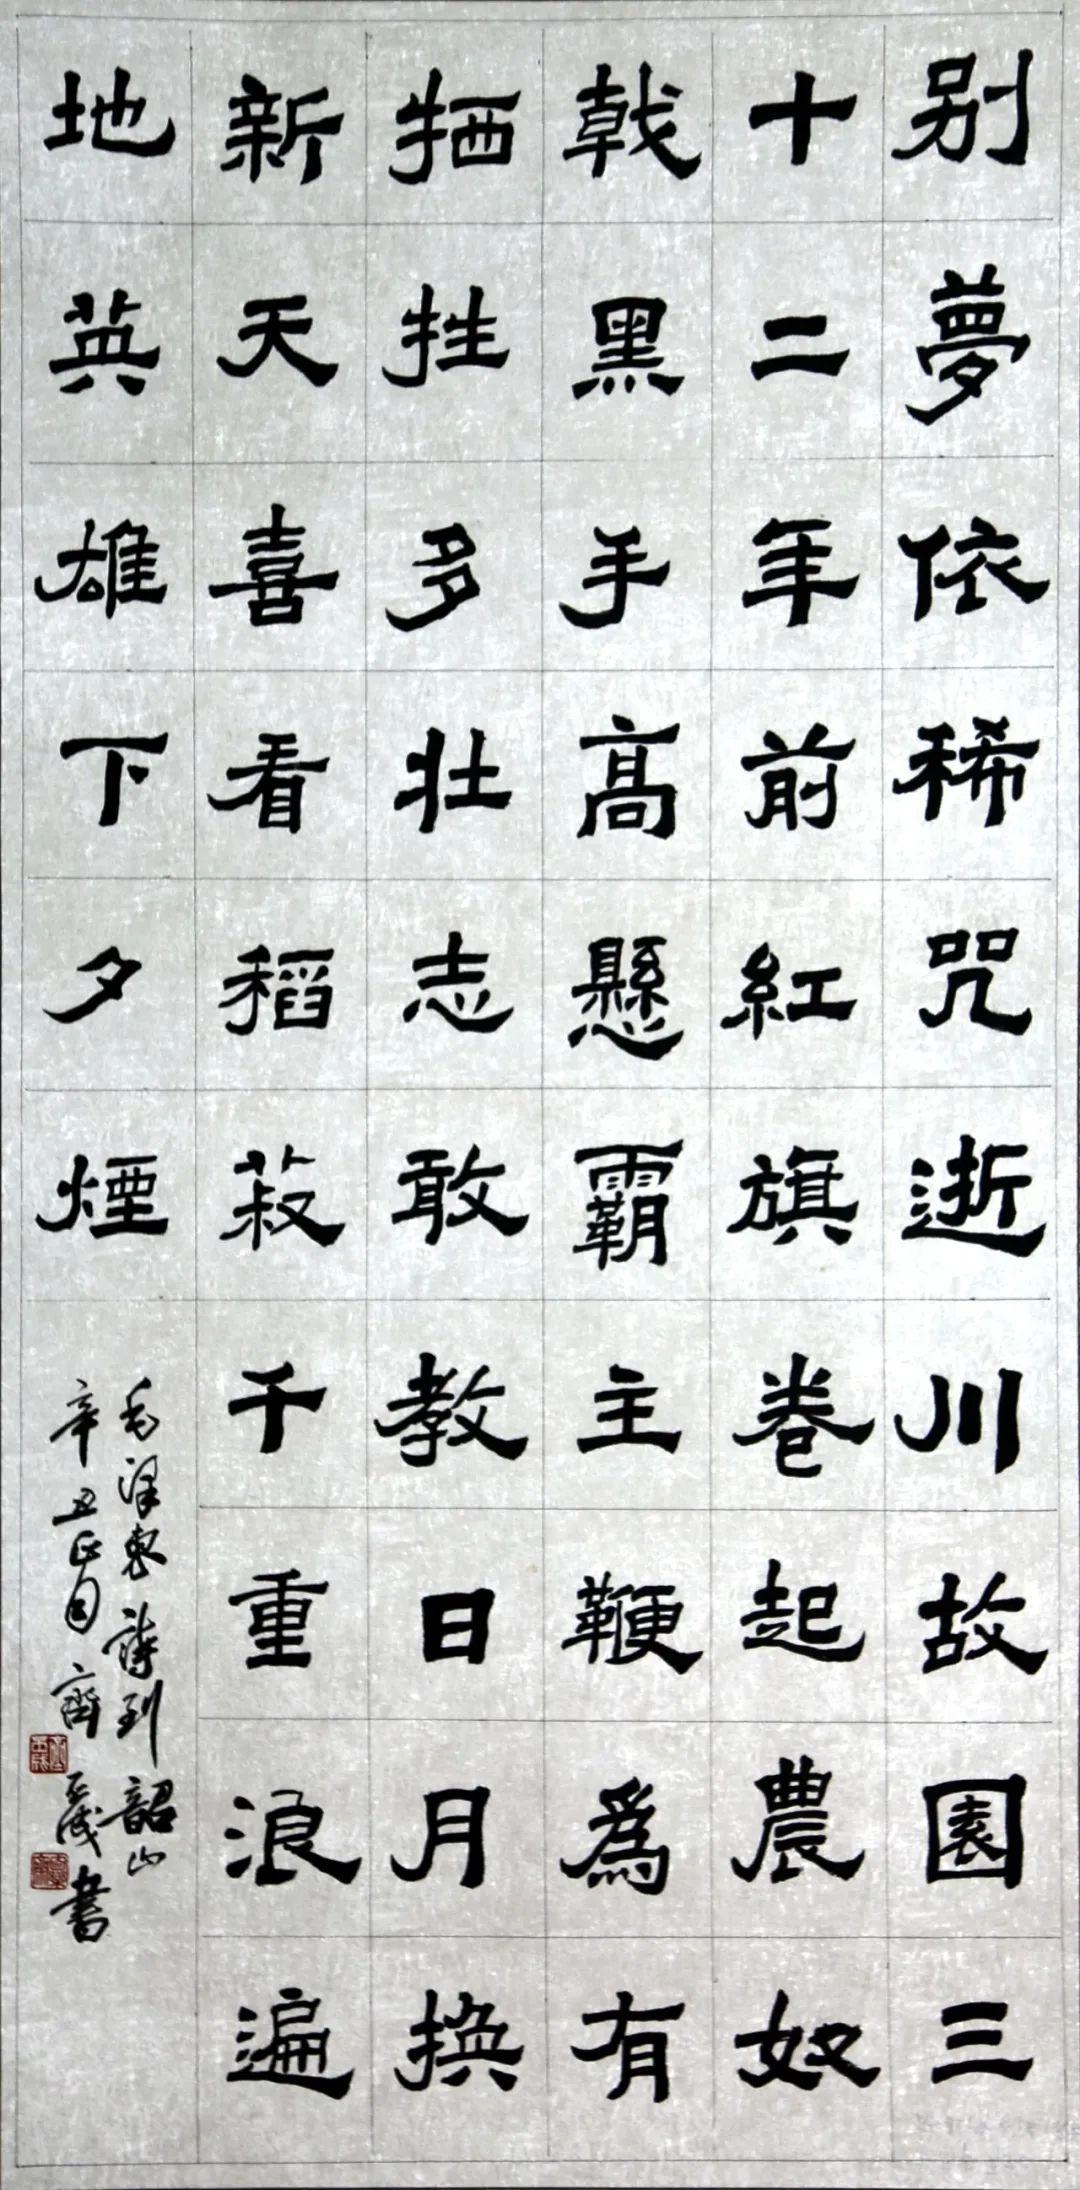 别夢依稀咒逝川故園三
十二年前紅旗卷起農奴
戟黑手髙懸霸主鞭爲有
牺牲多壮志敢教日月換
新天喜看稻菽千重浪遍
地英雄下夕煙
毛澤東詩到韶山
辛丑正月齊書